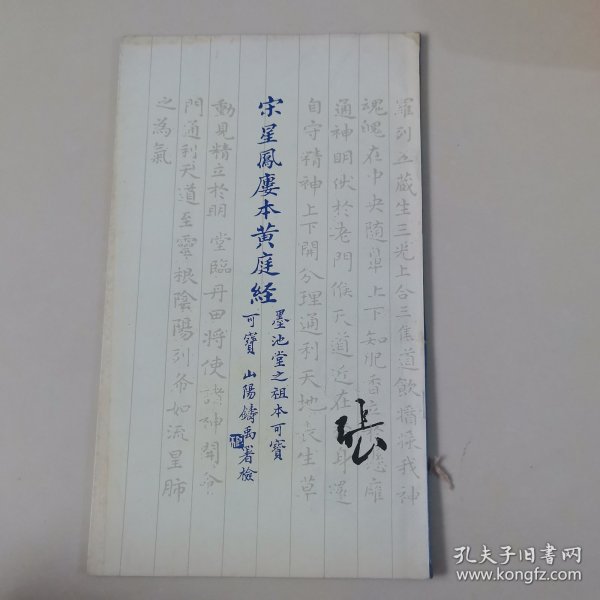 羅列五藏生三光上合三焦道飲
我神
魂魄在中央隨鼻上下知肥香立
通神明伏於老門候天道近在
身還
自守精神上下開分理通利天地長生草
宋星鳳廔本黄庭経
墨池堂之祖本可寶
可寶 山陽鑄禹署檢
動見精立於明堂臨丹田將使諸神開命
門通利天道至靈根陰陽列布如流星肺
之為氣
張
孔夫子旧书网
www.kongfz.com